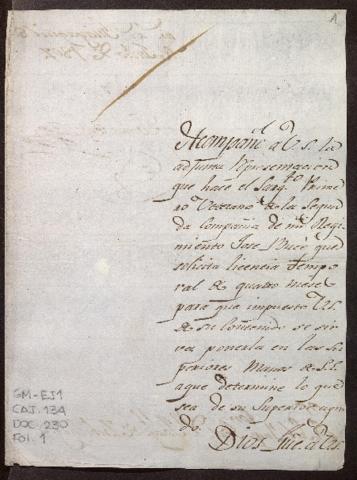 A
Acompaño á V.S. la
adjunta Representacion
que hace el Sarg.to Prime
ro Veterano de la Segun
da Compañia de mi Regi
miento Jose que
solicita licencia Tempo
ral de quatro meses
para que impuesto V.S.
de su Contenido se sir
va ponerla en las Su
periores Manos de S.E.
aque determine lo que
sea de su Superior agra
do.
Dios gue. a V.S.
GM-EJ1
CAJ. 134
DOC. 230
FOL. 1